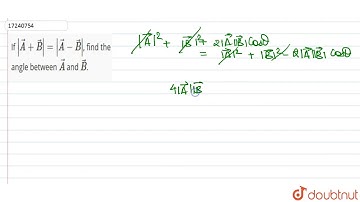 17240754
If |A⃗ + B⃗| = |A⃗ − B⃗|, find the
angle between A⃗ and B⃗.
|A⃗|² + |B⃗|² + 2|A⃗||B⃗| cosθ
= |A⃗|² + |B⃗|² − 2|A⃗||B⃗| cosθ
4|A⃗||B⃗
doubtnut